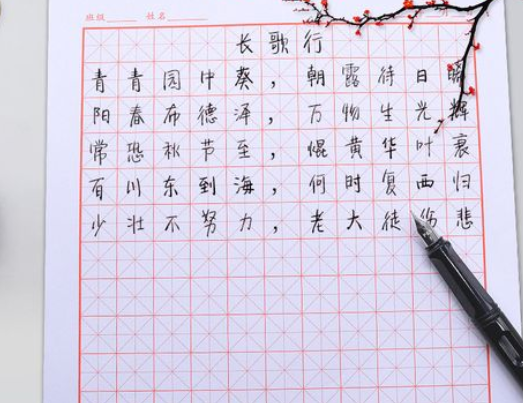 班级 姓名
长歌行
青青园中葵，朝露待日晞
阳春布德泽，万物生光辉
常恐秋节至，焜黄华叶衰
百川东到海，何时复西归
少壮不努力，老大徒伤悲